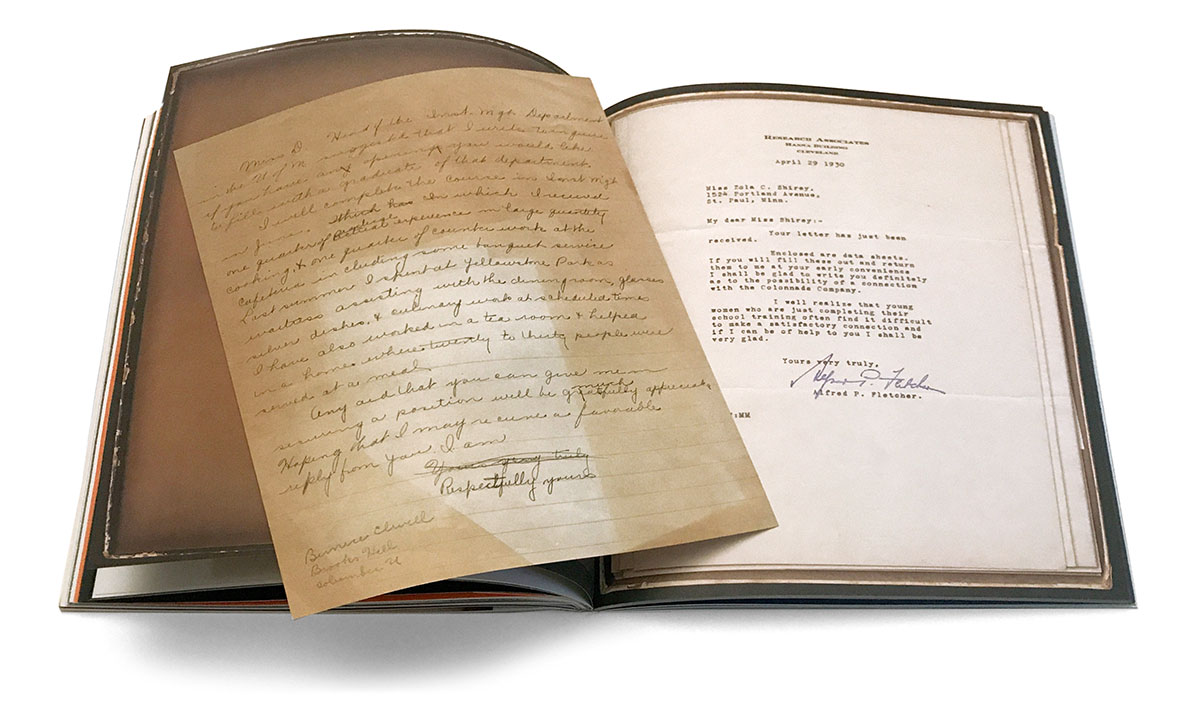 Miss D. Head of the Inst. Mgt. Department
in the U of M suggested that I write to inquire
if you have any opening you would like
to fill with a graduate of that department.
I will complete the course in Inst Mgt
in June, which has In which I received
one quarter of actual experience in large quantity
cooking, & one quarter of counter work at the
cafeteria including some banquet service
Last summer I spent at Yellowstone Park as
waitress assisting with the dining room, glasses
silver dishes, & culinary work at scheduled times
I have also worked in a tea room & helped
in a home where twenty to thirty people were
served at a meal.
Any aid that you can give me in
much
securing a position will be gratefully appreciate
Hoping that I may receive a favorable
reply from you. I am
Yours very truly
Respectfully yours
Brooks Hall
Columbus
RESEARCH ASSOCIATES
HANNA BUILDING
CLEVELAND
April 29 1930
Miss Zola C. Shirey,
1524 Portland Avenue,
St. Paul, Minn.
My dear Miss Shirey:-
Your letter has just been
received.
Enclosed are data sheets.
If you will fill these out and return
them to me at your early convenience
I shall be glad to write you definitely
as to the possibility of a connection
with the Colonnade Company.
I well realize that young
women who are just completing their
school training often find it difficult
to make a satisfactory connection and
if I can be of help to you I shall be
very glad.
Yours very truly,
Alfred P. Fletcher
Alfred P. Fletcher.
:MM